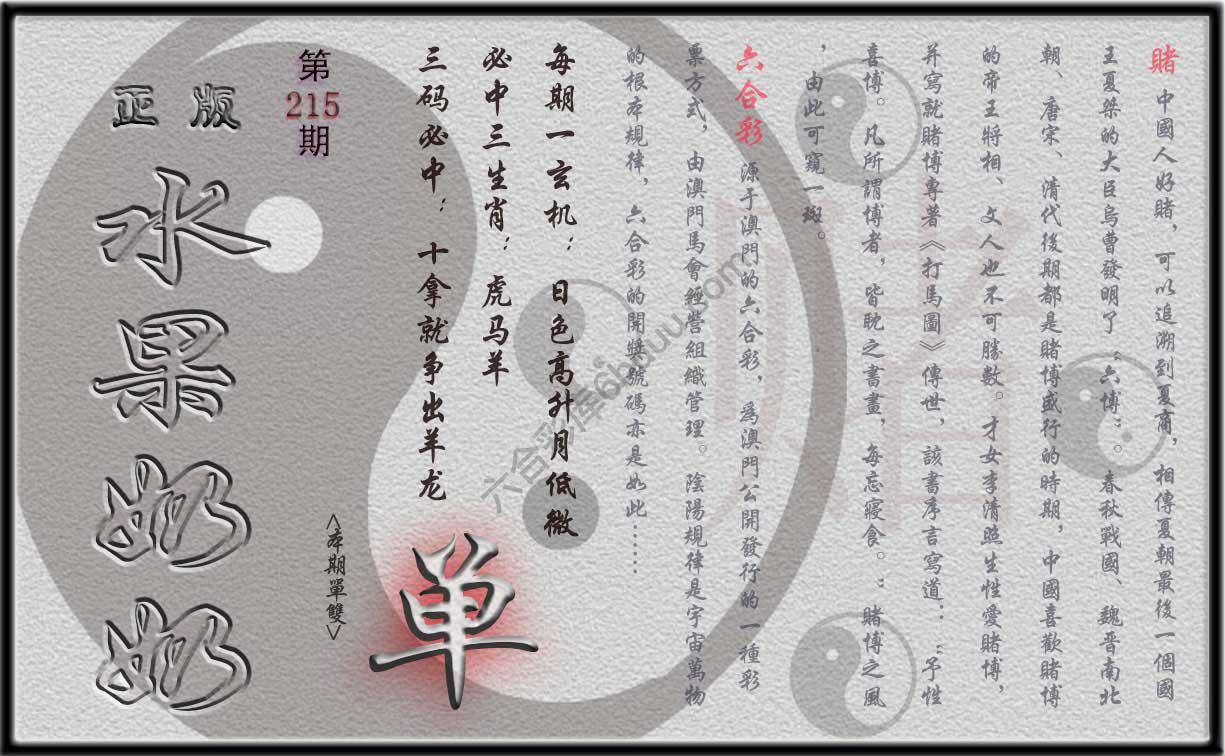 賭 中國人好賭，可以追溯到夏商，相傳夏朝最後一個國
王夏桀的大臣烏曹發明了“六博”。春秋戰國、魏晋南北
朝、唐宋、清代後期都是賭博盛行的時期，中國喜歡賭博
的帝王將相、文人也不可勝數。才女李清照生性愛賭博，
并寫就賭博專著《打馬圖》傳世，該書序言寫道：“予性
喜博。凡所謂博者，皆耽之書畫，每忘寢食。”賭博之風
，由此可窺一斑。
六合彩 源于澳門的六合彩，爲澳門公開發行的一種彩
票方式，由澳門馬會經營組織管理。陰陽規律是宇宙萬物
的根本規律，六合彩的開獎號碼亦是如此……
每期一玄机：日色高升月低微
必中三生肖：虎马羊
三码必中：十拿就争出羊龙
<本期單雙>
单
第
215
期
正版
水果奶奶
六合彩库6hduu.com